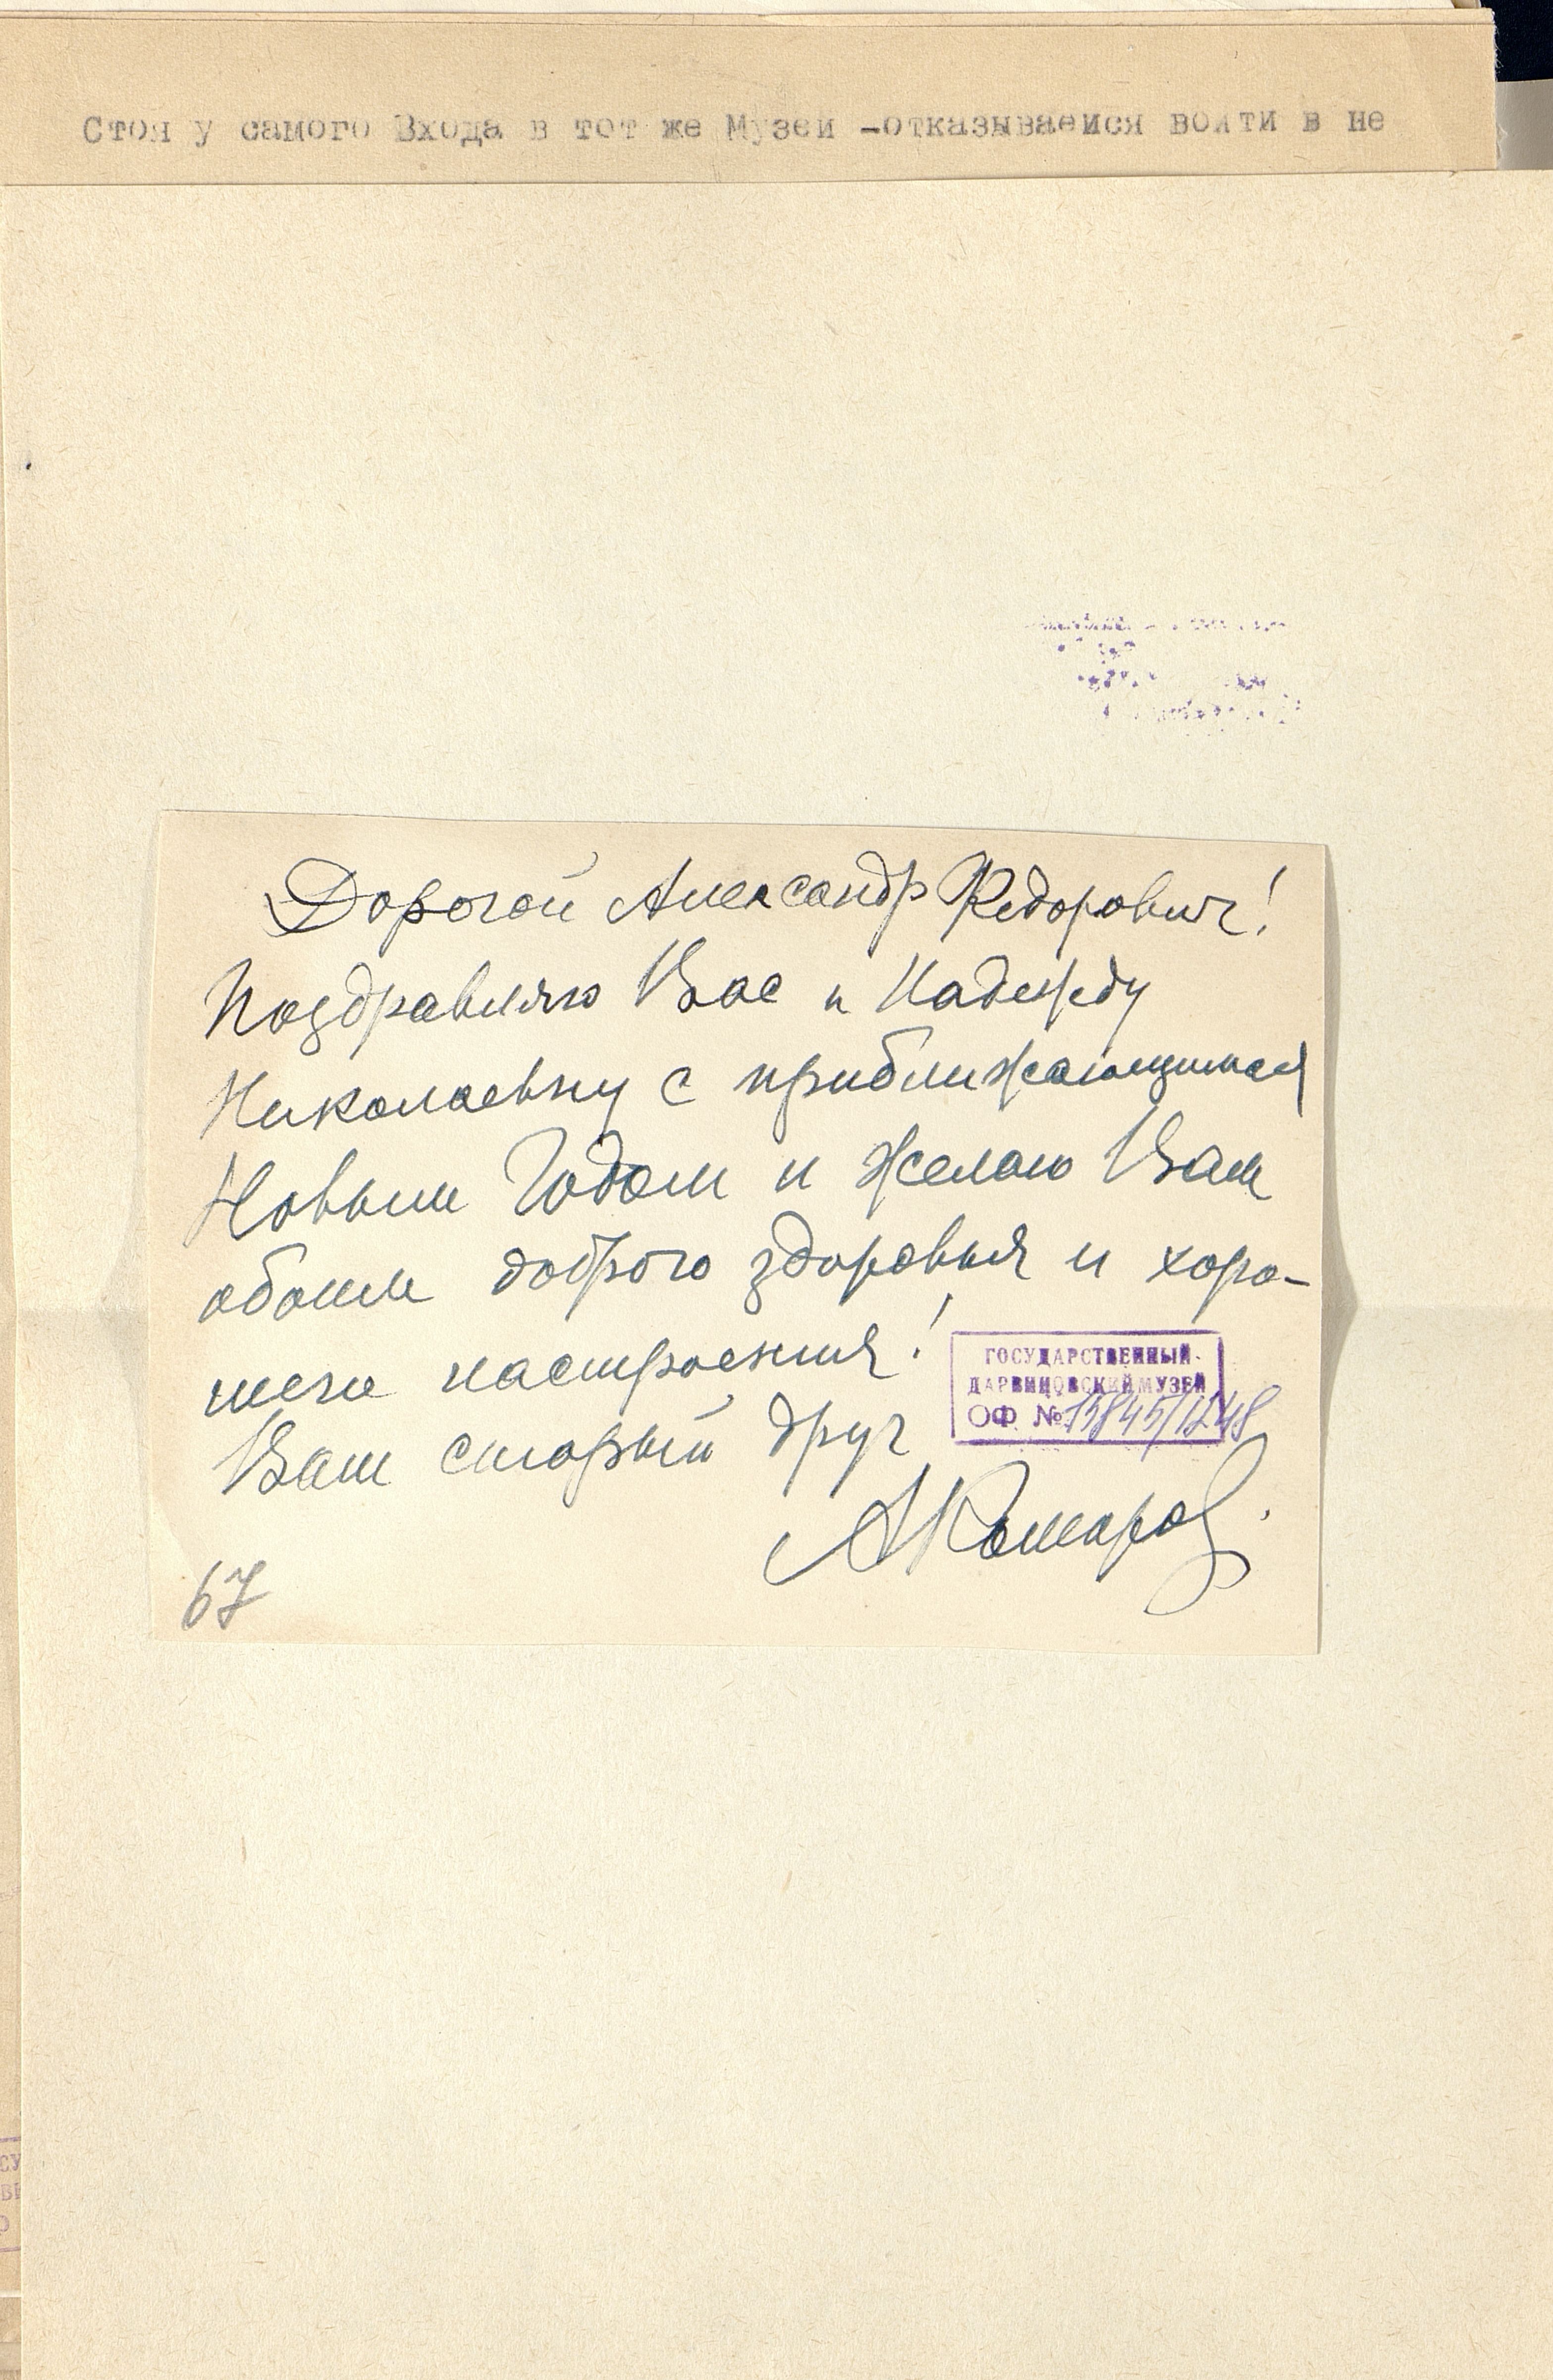 Стоя у самого Входа в тот же Музей -отказываемся войти в не
Дорогой Александр Федорович!
Поздравляю Вас и Надежду
Николаевну с приближающимся
Новым Годом и желаю Вам
обоим доброго здоровья и хоро-
шего настроения!
ГОСУДАРСТВЕННЫЙ
ДАРВИНОВСКИЙ МУЗЕЙ
ОФ № 15845/1248
Ваш старый друг
АКомаров.
67